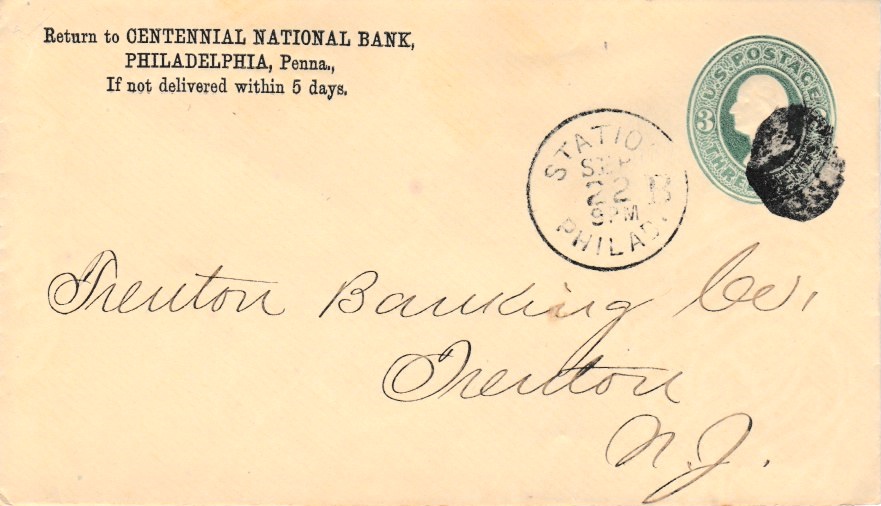 Return to CENTENNIAL NATIONAL BANK,
PHILADELPHIA, Penna.,
If not delivered within 5 days.
U.S. POSTAGE
3
STATION
SEP
22 B
9 PM
PHILAD
Trenton Banking Co.,
Trenton
N.J.